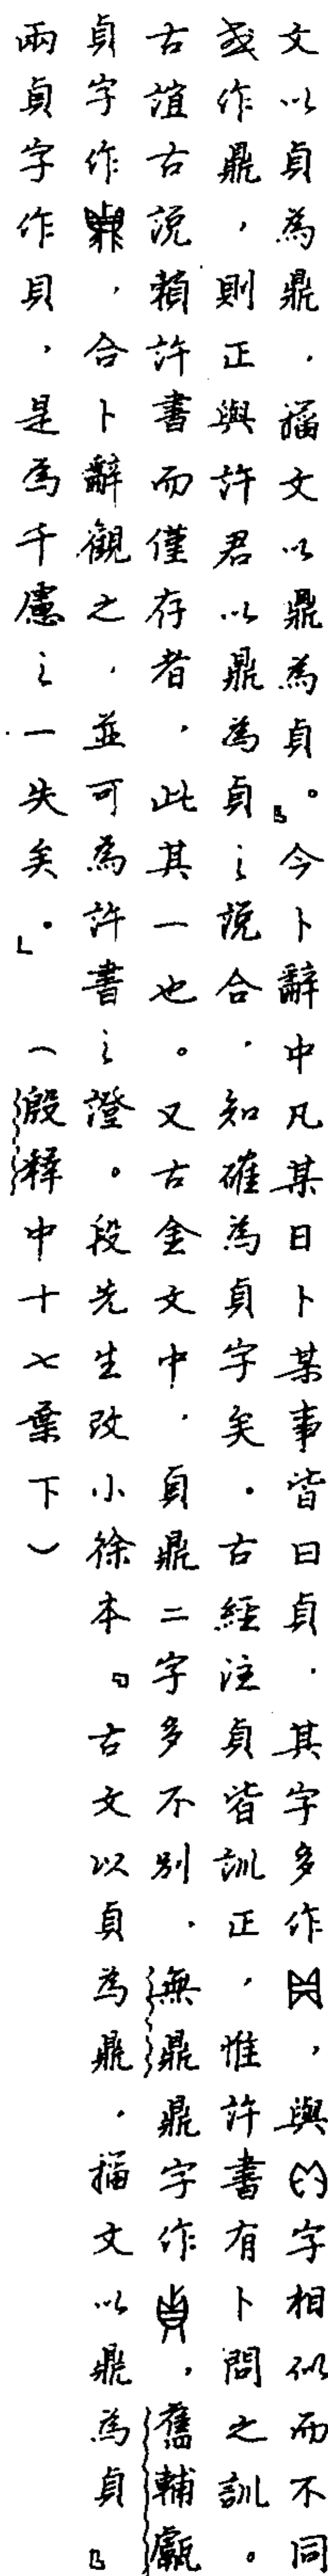 文以貞為鼎，籀文以鼎為貞。』今卜辭中凡某日卜某事皆曰貞，其字多作，與字相似而不同
或作鼎，則正與許君以鼎為貞之說合，知確為貞字矣。古經注貞皆訓正，惟許書有卜問之訓。
古誼古說賴許書而僅存者，此其一也。又古金文中，貞鼎二字多不別，無鼎鼎字作，舊輔甗
貞字作，合卜辭觀之，並可為許書之證。段先生改小徐本『古文以貞為鼎，籀文以鼎為貞』
兩貞字作貝，是為千慮之一失矣。」（殷釋中十七葉下）